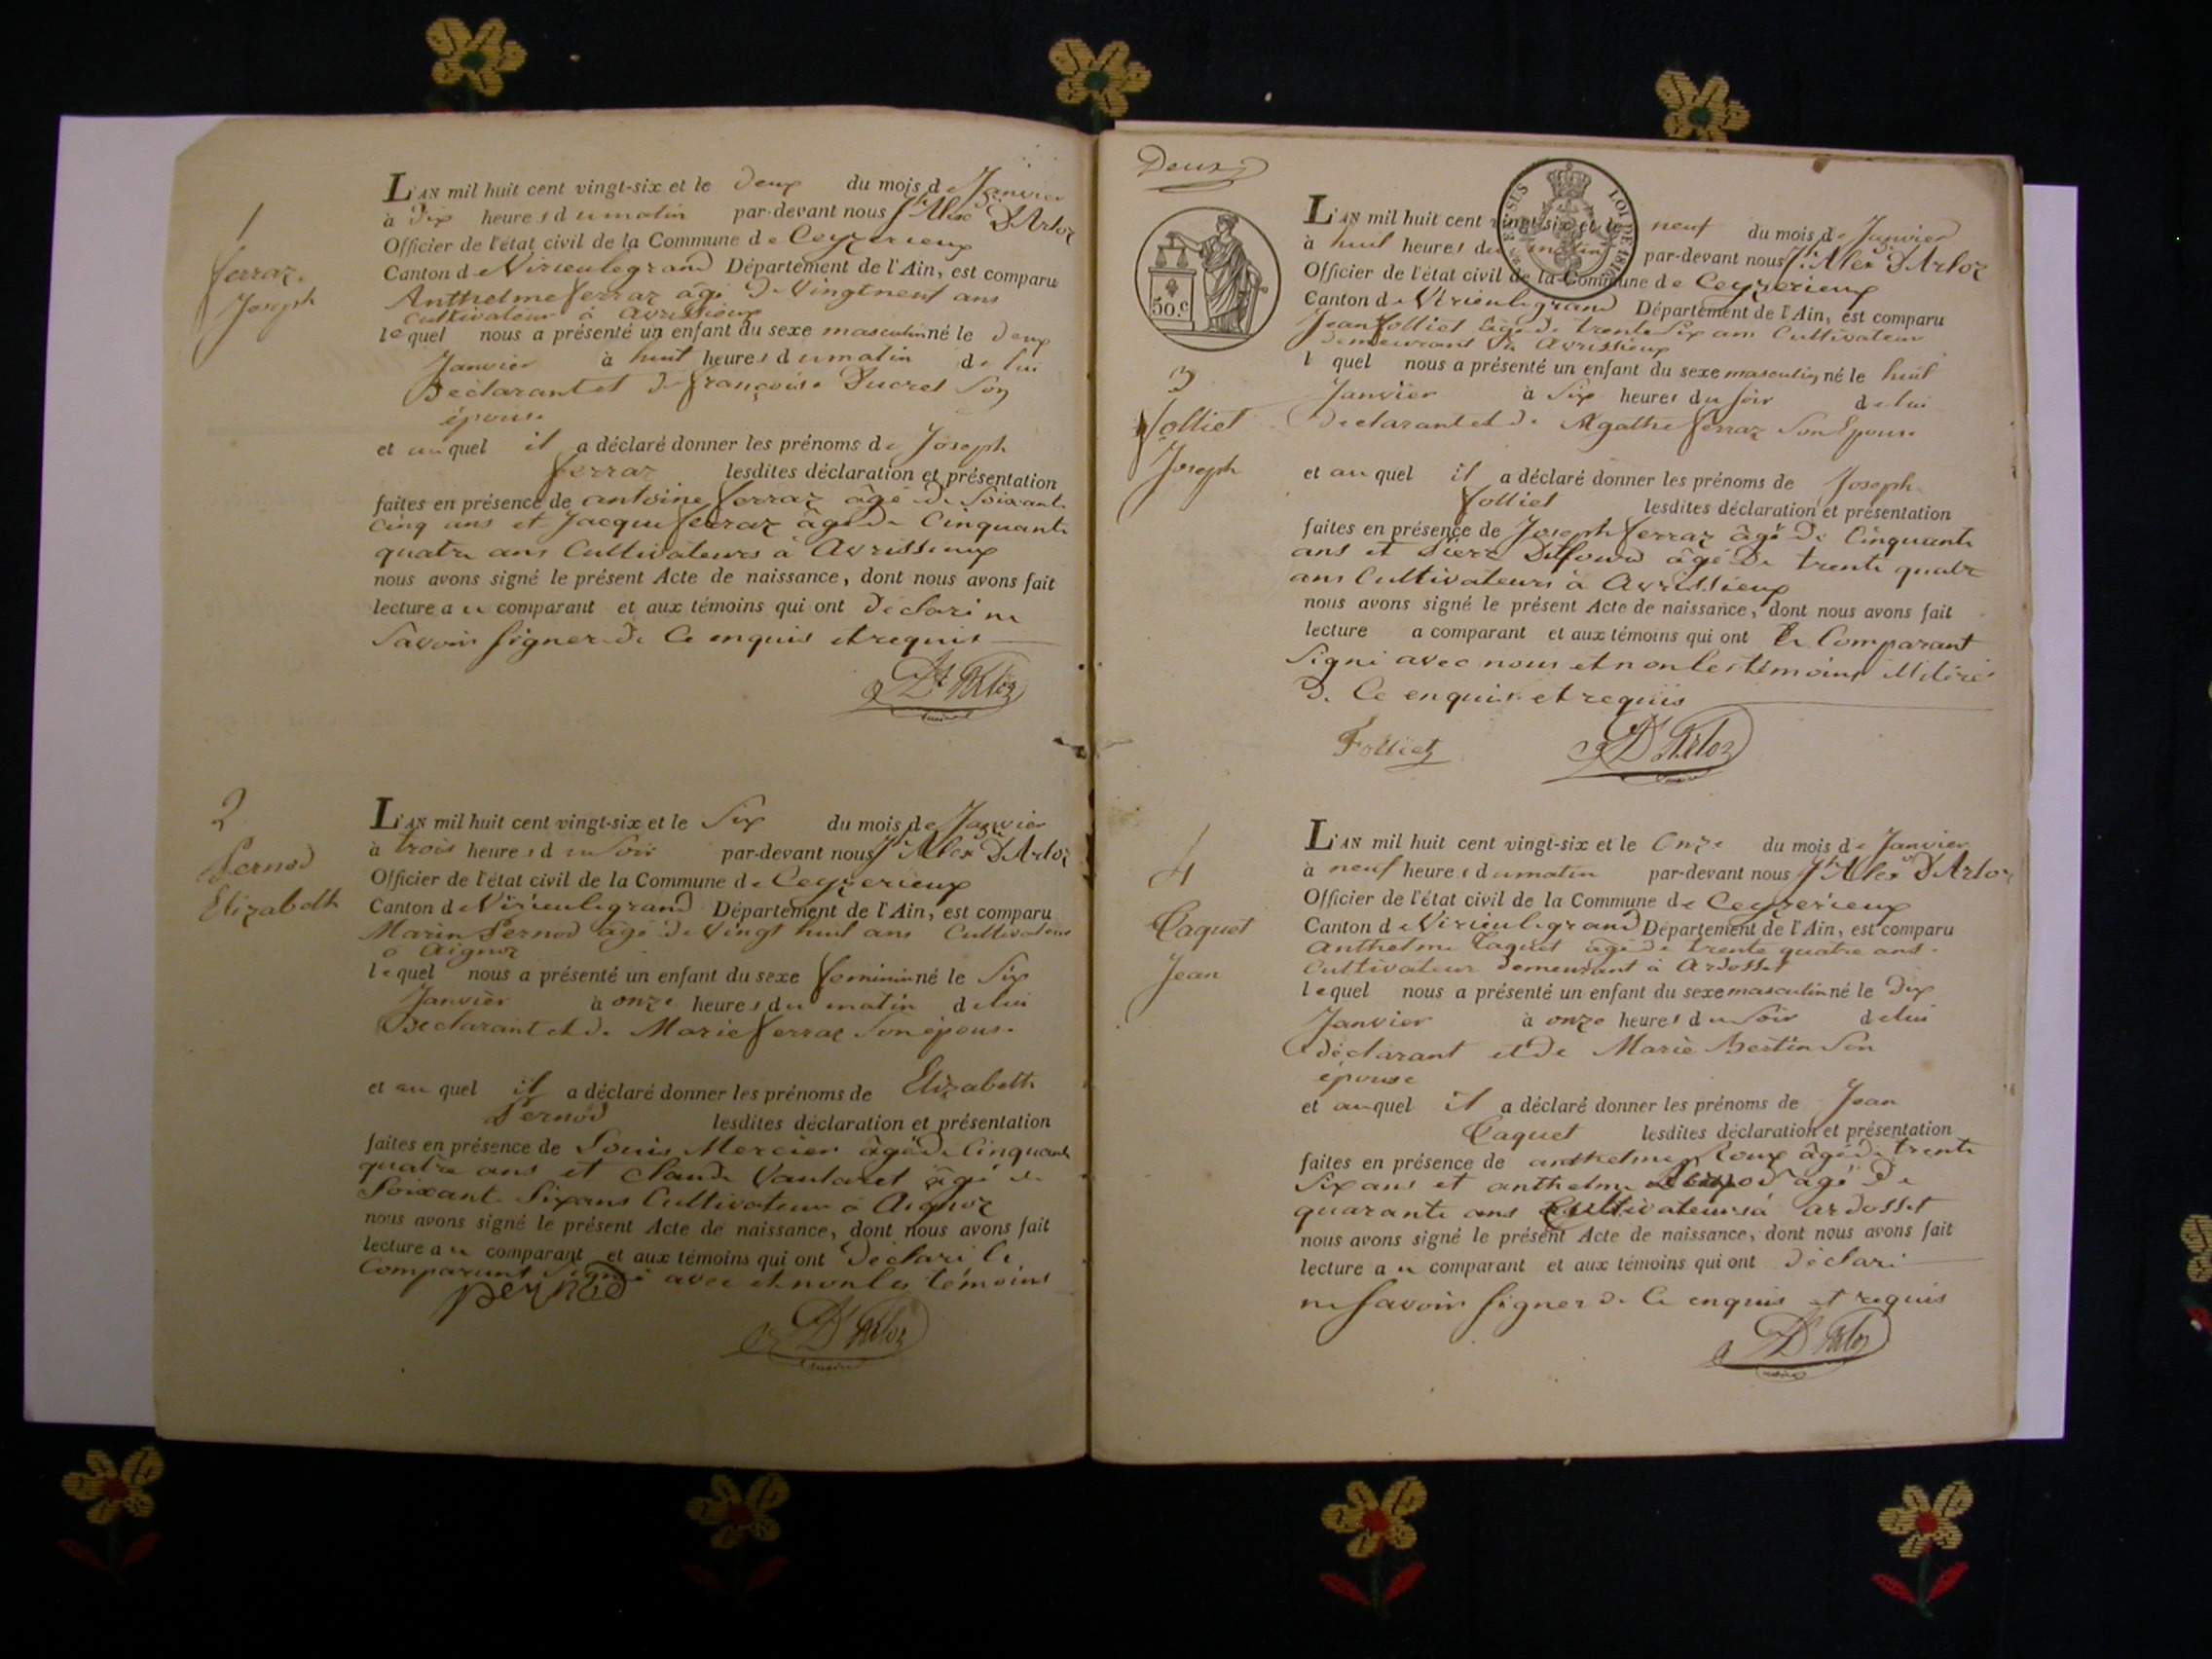 1
ferraz
Joseph
L'AN mil huit cent vingt-six et le deux du mois de Janvier
à dix heures du matin par-devant nous Jh Alex D'Arloz
Officier de l'état civil de la Commune de Ceyzerieux
Canton de Virieulegrand Département de l'Ain, est comparu
Anthelme ferraz âgé de Vingtneuf ans
Cultivateur à Avrissieux
lequel nous a présenté un enfant du sexe masculin né le deux
Janvier à huit heures du matin de lui
Déclarant et de françoise Ducret Son
épouse
et auquel il a déclaré donner les prénoms de Joseph
ferraz lesdites déclaration et présentation
faites en présence de antoine ferraz âgé de Soixante
Cinq ans et Jacque ferraz âgé de Cinquante
quatre ans Cultivateurs à Avrissieux
nous avons signé le présent Acte de naissance, dont nous avons fait
lecture au comparant et aux témoins qui ont déclaré ne
Savoir Signer de Ce enquis et requis
D'Arloz
2
Pernod
Elizabeth
L'AN mil huit cent vingt-six et le Six du mois de Janvier
à trois heures du Soir par-devant nous Jh Alex D'Arloz
Officier de l'état civil de la Commune de Ceyzerieux
Canton de Virieulegrand Département de l'Ain, est comparu
Marin Pernod âgé de Vingt huit ans Cultivateur
à Aignoz
lequel nous a présenté un enfant du sexe feminin né le Six
Janvier à onze heures du matin de lui
Declarant et de Marie ferraz Son épouse
et auquel il a déclaré donner les prénoms de Elizabeth
Pernod lesdites déclaration et présentation
faites en présence de Louis Mercier âgé de Cinquante
quatre ans et Claude Vautaret âgé de
Soixante Six ans Cultivateurs à Aignoz
nous avons signé le présent Acte de naissance, dont nous avons fait
lecture au comparant et aux témoins qui ont déclaré le
Comparant Signé avec et non les témoins
pernod
D'Arloz
Deux
50.c
LOI DE 1816
3
folliet
Joseph
L'AN mil huit cent vingt-six et le neuf du mois de Janvier
à huit heures du matin par-devant nous Jh Alex D'Arloz
Officier de l'état civil de la Commune de Ceyzerieux
Canton de Virieulegrand Département de l'Ain, est comparu
Jean folliet âgé de trente Six ans Cultivateur
demeurant à Avrissieux
l quel nous a présenté un enfant du sexe masculin né le huit
Janvier à Six heures du Soir de lui
Declarant et de Agathe ferraz Son Epouse
et auquel il a déclaré donner les prénoms de Joseph
folliet lesdites déclaration et présentation
faites en présence de Joseph ferraz âgé de Cinquante
ans et Pierre Dufourd âgé de trente quatre
ans Cultivateurs à Avrissieux
nous avons signé le présent Acte de naissance, dont nous avons fait
lecture a comparant et aux témoins qui ont le Comparant
Signé avec nous et non les témoins
de Ce enquis et requis
Folliet D'Arloz
4
Caquet
Jean
L'AN mil huit cent vingt-six et le Onze du mois de Janvier
à neuf heures du matin par-devant nous Jh Alex D'Arloz
Officier de l'état civil de la Commune de Ceyzerieux
Canton de Virieulegrand Département de l'Ain, est comparu
Anthelme Caquet âgé de trente quatre ans
Cultivateur demeurant à Ardosset
lequel nous a présenté un enfant du sexe masculin né le dix
Janvier à onze heures du Soir de lui
déclarant et de Marie Bertin Son
épouse
et auquel il a déclaré donner les prénoms de Jean
Caquet lesdites déclaration et présentation
faites en présence de anthelme Roux âgé de trente
Six ans et anthelme âgé de
quarante ans Cultivateurs à ardosset
nous avons signé le présent Acte de naissance, dont nous avons fait
lecture au comparant et aux témoins qui ont déclaré
ne Savoir Signer de Ce enquis et requis
D'Arloz